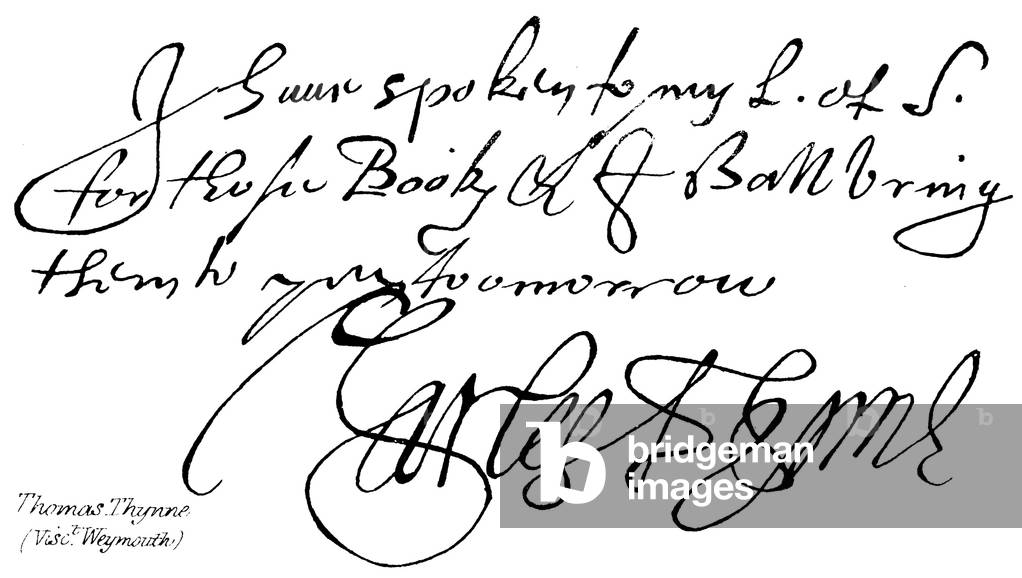 I haue spoken to my L. of S.
for those Books & I shall bring
them to you toomorrow
Thynne
Thomas Thynne
(Visc.t Weymouth)
b bridgeman
images
b
b
b